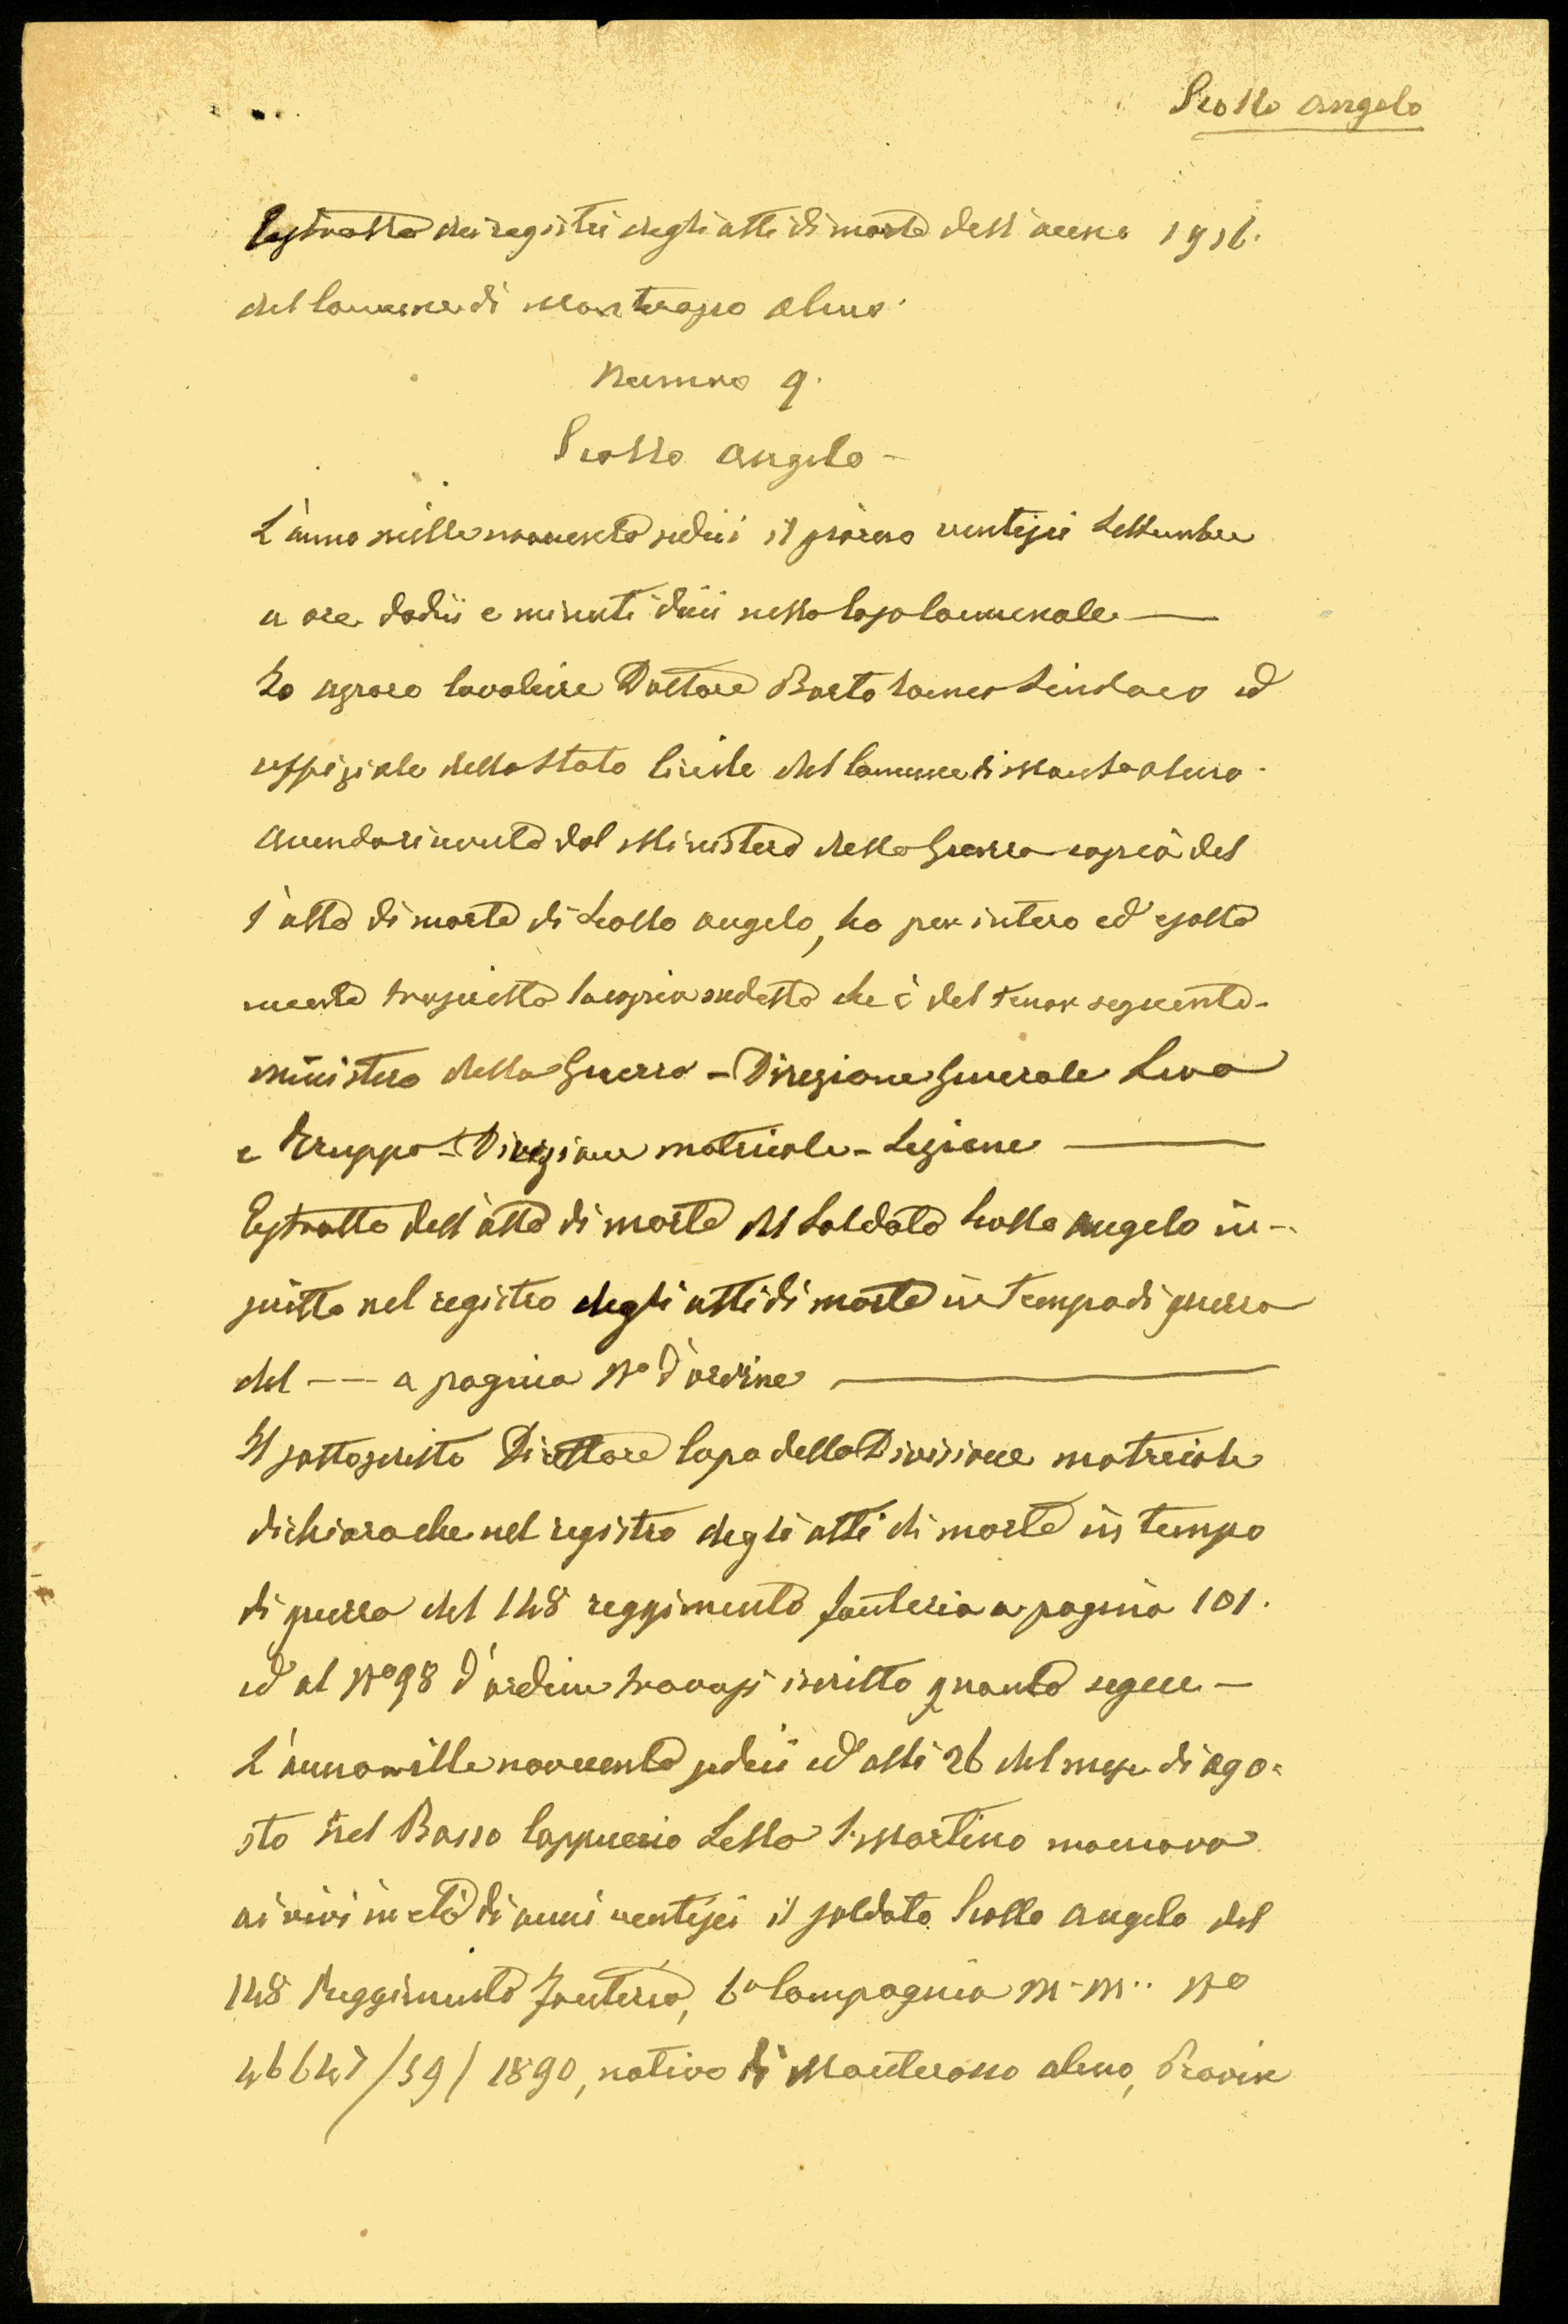 Scollo Angelo
Estratto dai registri degli atti di morte dell'anno 1916.
del Comune di Monterosso Almo.
Numero 9.
Scollo Angelo -
L'anno mille novecento sedici il giorno ventisei Settembre
a ore dodici e minuti dieci nella Casa Comunale —
Io Cavaliere Dottore Bartolomeo Sindaco ed
uffiziale dello Stato Civile del Comune di Monterosso Almo.
Avendo ricevuto dal Ministero della Guerra copia del
l'atto di morte di Scollo Angelo, ho per intero ed esatta
mente trascritto la copia medesima che è del tenor seguente -
Ministero della Guerra - Direzione Generale Leva
e Truppa - Divisione matricole - Sezione —
Estratto dell'atto di morte del Soldato Scollo Angelo in-
scritto nel registro degli atti di morte in tempo di guerra
del — — a pagina No d'ordine —
Il sottoscritto Direttore Capo della Divisione matricole
dichiara che nel registro degli atti di morte in tempo
di guerra del 148 reggimento fanteria a pagina 101.
ed al No 98 d'ordine trovasi iscritto quanto segue —
L'anno mille novecento sedici ed alli 26 del mese di ago=
sto nel Bosso Cappuccio Sella S. Martino mancava
ai vivi in età di anni ventisei il soldato Scollo Angelo del
148 Reggimento Fanteria, 6a Compagnia M. M.. No
/39/ 1890, nativo di Monterosso Almo, Provin